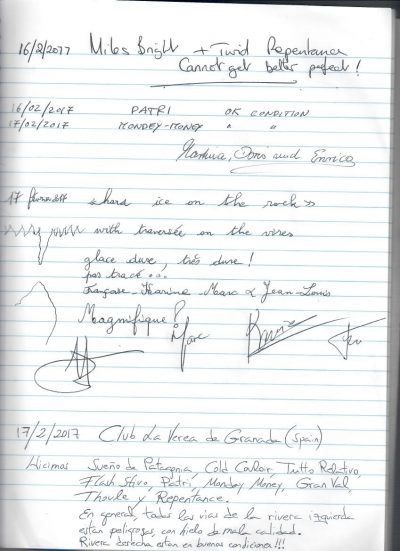 16/2/2017 Miles Bright + Twid Repentance
Cannot get better perfect!
16/02/2017 PATRI OK CONDITION
17/02/2017 MONDEY-MONEY " "
Martina, Doris und Enrico
17 février 2017 «hard ice on the rock»
with traversée on the vires
glace dure, très dure!
pas track...
Françoise - Karine - Marc & Jean-Louis
Magnifique!
Marc
17/2/2017 Club La Verea de Granada (Spain)
Hicimos Sueño de Patagonia, Cold Couloir, Tutto Relativo,
Flash Stivo, Patrí, Monday Money, Gran Val
Thoule y Repentance.
En general, todas las vias de la rivera izquierda
están peligrosas, con hielo de mala calidad.
Rivera derecha están en buenas condiciones!!!